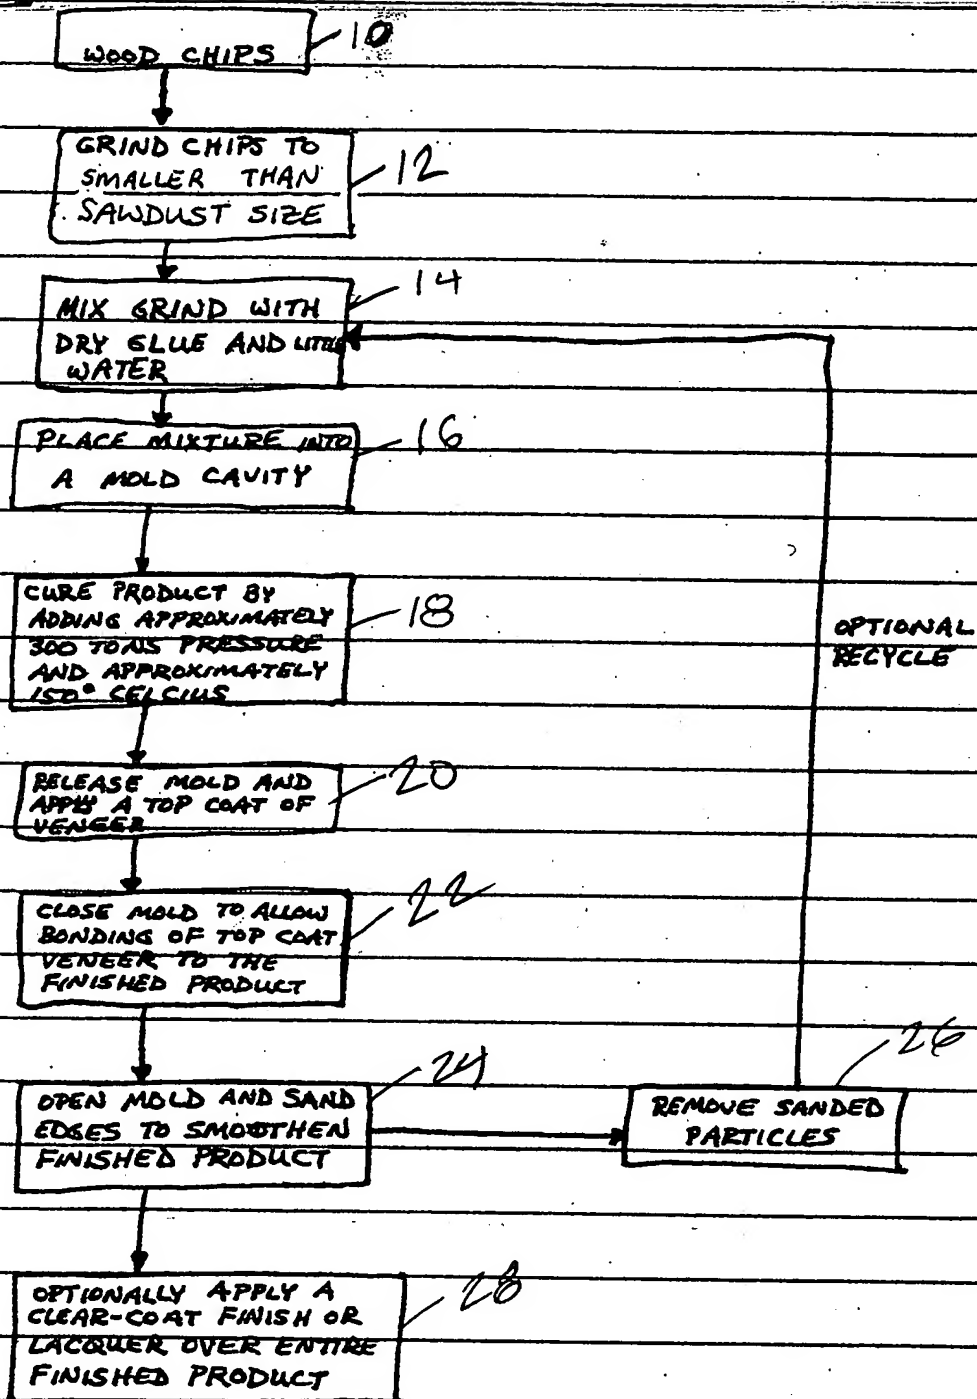 10
WOOD CHIPS
GRIND CHIPS TO
SMALLER THAN
SAWDUST SIZE
12
14
MIX GRIND WITH
DRY GLUE AND LITTLE
WATER
PLACE MIXTURE INTO
A MOLD CAVITY
16
CURE PRODUCT BY
ADDING APPROXIMATELY
300 TONS PRESSURE
AND APPROXIMATELY
150° CELCIUS
18
OPTIONAL
RECYCLE
RELEASE MOLD AND
APPLY A TOP COAT OF
VENEER
20
CLOSE MOLD TO ALLOW
BONDING OF TOP COAT
VENEER TO THE
FINISHED PRODUCT
22
OPEN MOLD AND SAND
EDGES TO SMOOTHEN
FINISHED PRODUCT
24
26
REMOVE SANDED
PARTICLES
OPTIONALLY APPLY A
CLEAR-COAT FINISH OR
LACQUER OVER ENTIRE
FINISHED PRODUCT
28